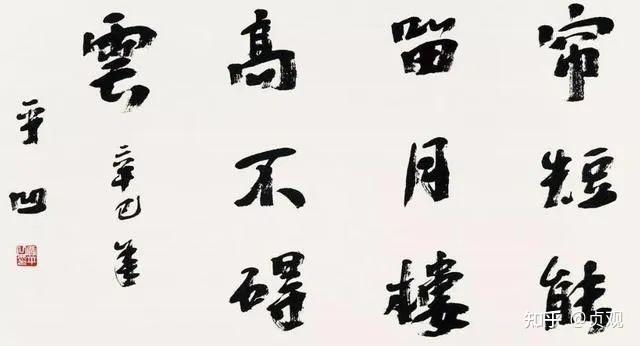 帘短能
留月樓
高不碍
雲 辛巳
平凹
知乎 @贞观